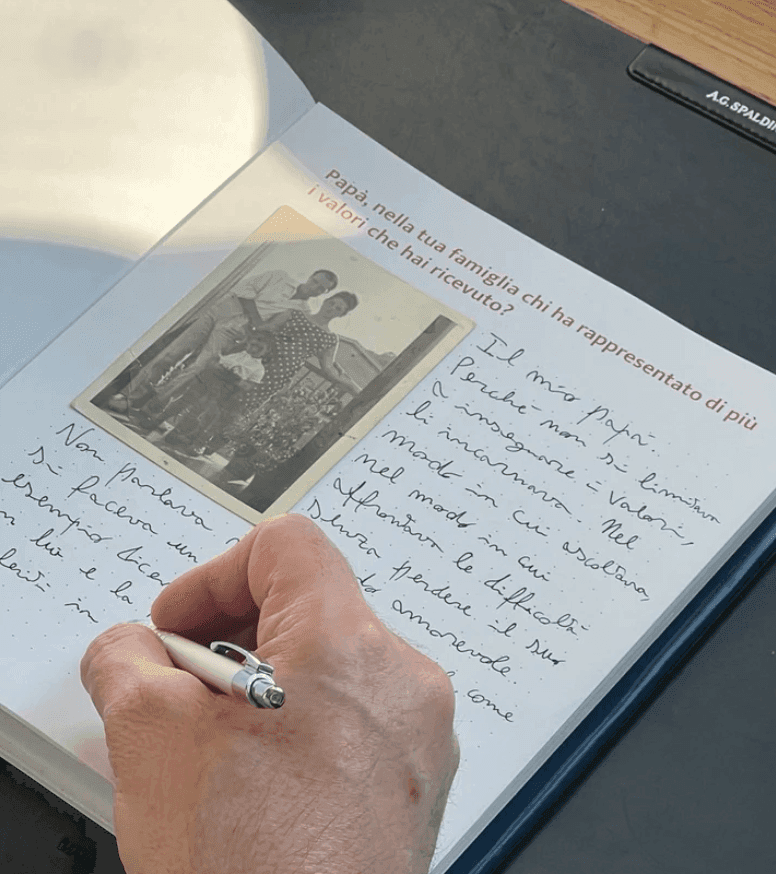 A.G. SPALDIN
Papà, nella tua famiglia chi ha rappresentato di più
i valori che hai ricevuto?
Il mio papà.
Perché non si limitava
a insegnare i valori,
li incarnava. Nel
modo in cui ascoltava,
nel modo in cui
affrontava le difficoltà
senza perdere il suo
amorevole.
come
Non parlava
si faceva un
esempio
lui e la
in